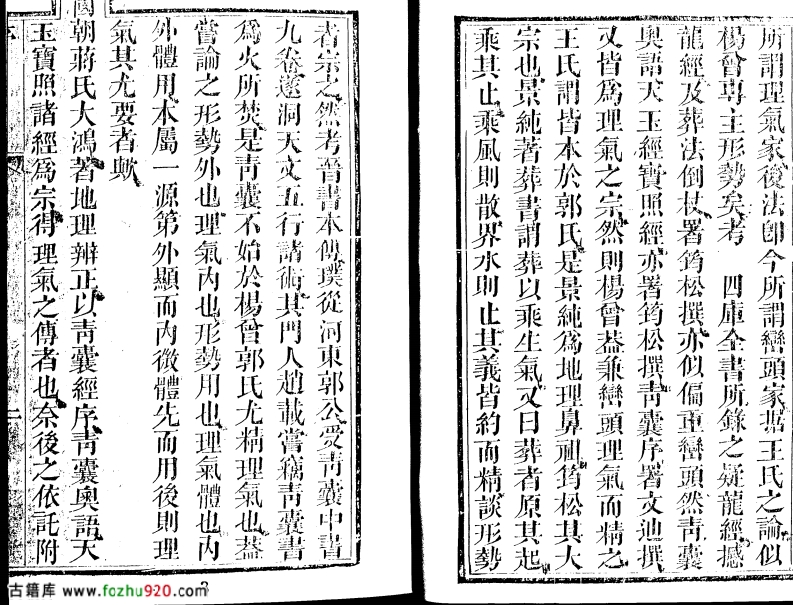 所謂理氣家後法卽今所謂巒頭家據王氏之論似
楊曾專主形勢矣考 四庫全書所錄之疑龍經撼
龍經及葬法倒杖署筠松撰亦似偏重巒頭然靑囊
奧語天玉經寶照經亦署筠松撰靑囊序署文辿撰
又皆爲理氣之宗然則楊曾葢兼巒頭理氣而精之
王氏謂皆本於郭氏是景純爲地理鼻祖筠松其大
宗也景純著葬書謂葬以乘生氣又曰葬者原其起
乘其止乘風則散界水則止其義皆約而精談形勢
者宗之然考晉書本傳璞從河東郭公受靑囊中書
九卷遂洞天文五行諸術其門人趙載嘗竊靑囊書
爲火所焚是靑囊不始於楊曾郭氏尤精理氣也葢
嘗論之形勢外也理氣內也形勢用也理氣體也內
外體用本屬一源第外顯而內微體先而用後則理
氣其尤要者歟
國朝蔣氏大鴻著地理辨正以靑囊經序靑囊奧語天
玉寶照諸經爲宗得理氣之傳者也奈後之依託附
序
二
古籍库 www.fozhu920.com
2